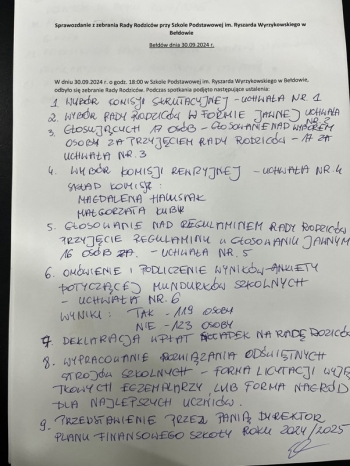 Sprawozdanie z zebrania Rady Rodziców przy Szkole Podstawowej im. Ryszarda Wyrzykowskiego w
Bełdowie
Bełdów dnia 30.09.2024 r.
W dniu 30.09.2024 r. o godz. 18:00 w Szkole Podstawowej im. Ryszarda Wyrzykowskiego w Bełdowie,
odbyło się zebranie Rady Rodziców. Podczas spotkania podjęto następujące ustalenie:
1. WYBÓR KOMISJI SKRUTACYJNEJ – UCHWAŁA NR 1
2. WYBÓR RADY RODZICÓW W FORMIE JAWNEJ UCHWAŁA NR 2
3. GŁOSUJĄCYCH 17 OSÓB – GŁOSOWANIE NAD WYBOREM
OSÓB ZA PRZYJĘCIEM RADY RODZICÓW – 17 ZA
UCHWAŁA NR. 3
4. WYBÓR KOMISJI REWIZYJNEJ – UCHWAŁA NR. 4
SKŁAD KOMISJI:
MAGDALENA
MAŁGORZATA
5. GŁOSOWANIE NAD REGULAMINEM RADY RODZICÓW
PRZYJĘCIE REGULAMINU W GŁOSOWANIU JAWNYM
16 OSÓB ZA. – UCHWAŁA NR. 5
6. OMÓWIENIE I PODLICZENIE WYNIKÓW ANKIETY
DOTYCZĄCEJ MUNDURKÓW SZKOLNYCH
– UCHWAŁA NR. 6
WYNIKI: TAK – 119 OSOBY
NIE – 123 OSOBY
7. DEKLARACJA WPŁAT SKŁADEK NA RADĘ RODZICÓW
8. WYPRACOWANIE ROZWIĄZANIA ODŚWIĘTNYCH
STROJÓW SZKOLNYCH – FORMA LICYTACJI WYJĄ
TKOWYCH EGZEMPLARZY LUB FORMA NAGRÓD
DLA NAJLEPSZYCH UCZNIÓW.
9. PRZEDSTAWIENIE PRZEZ PANIĄ DIREKTOR
PLANU FINANSOWEGO SZKOŁY ROKU 2024/2025